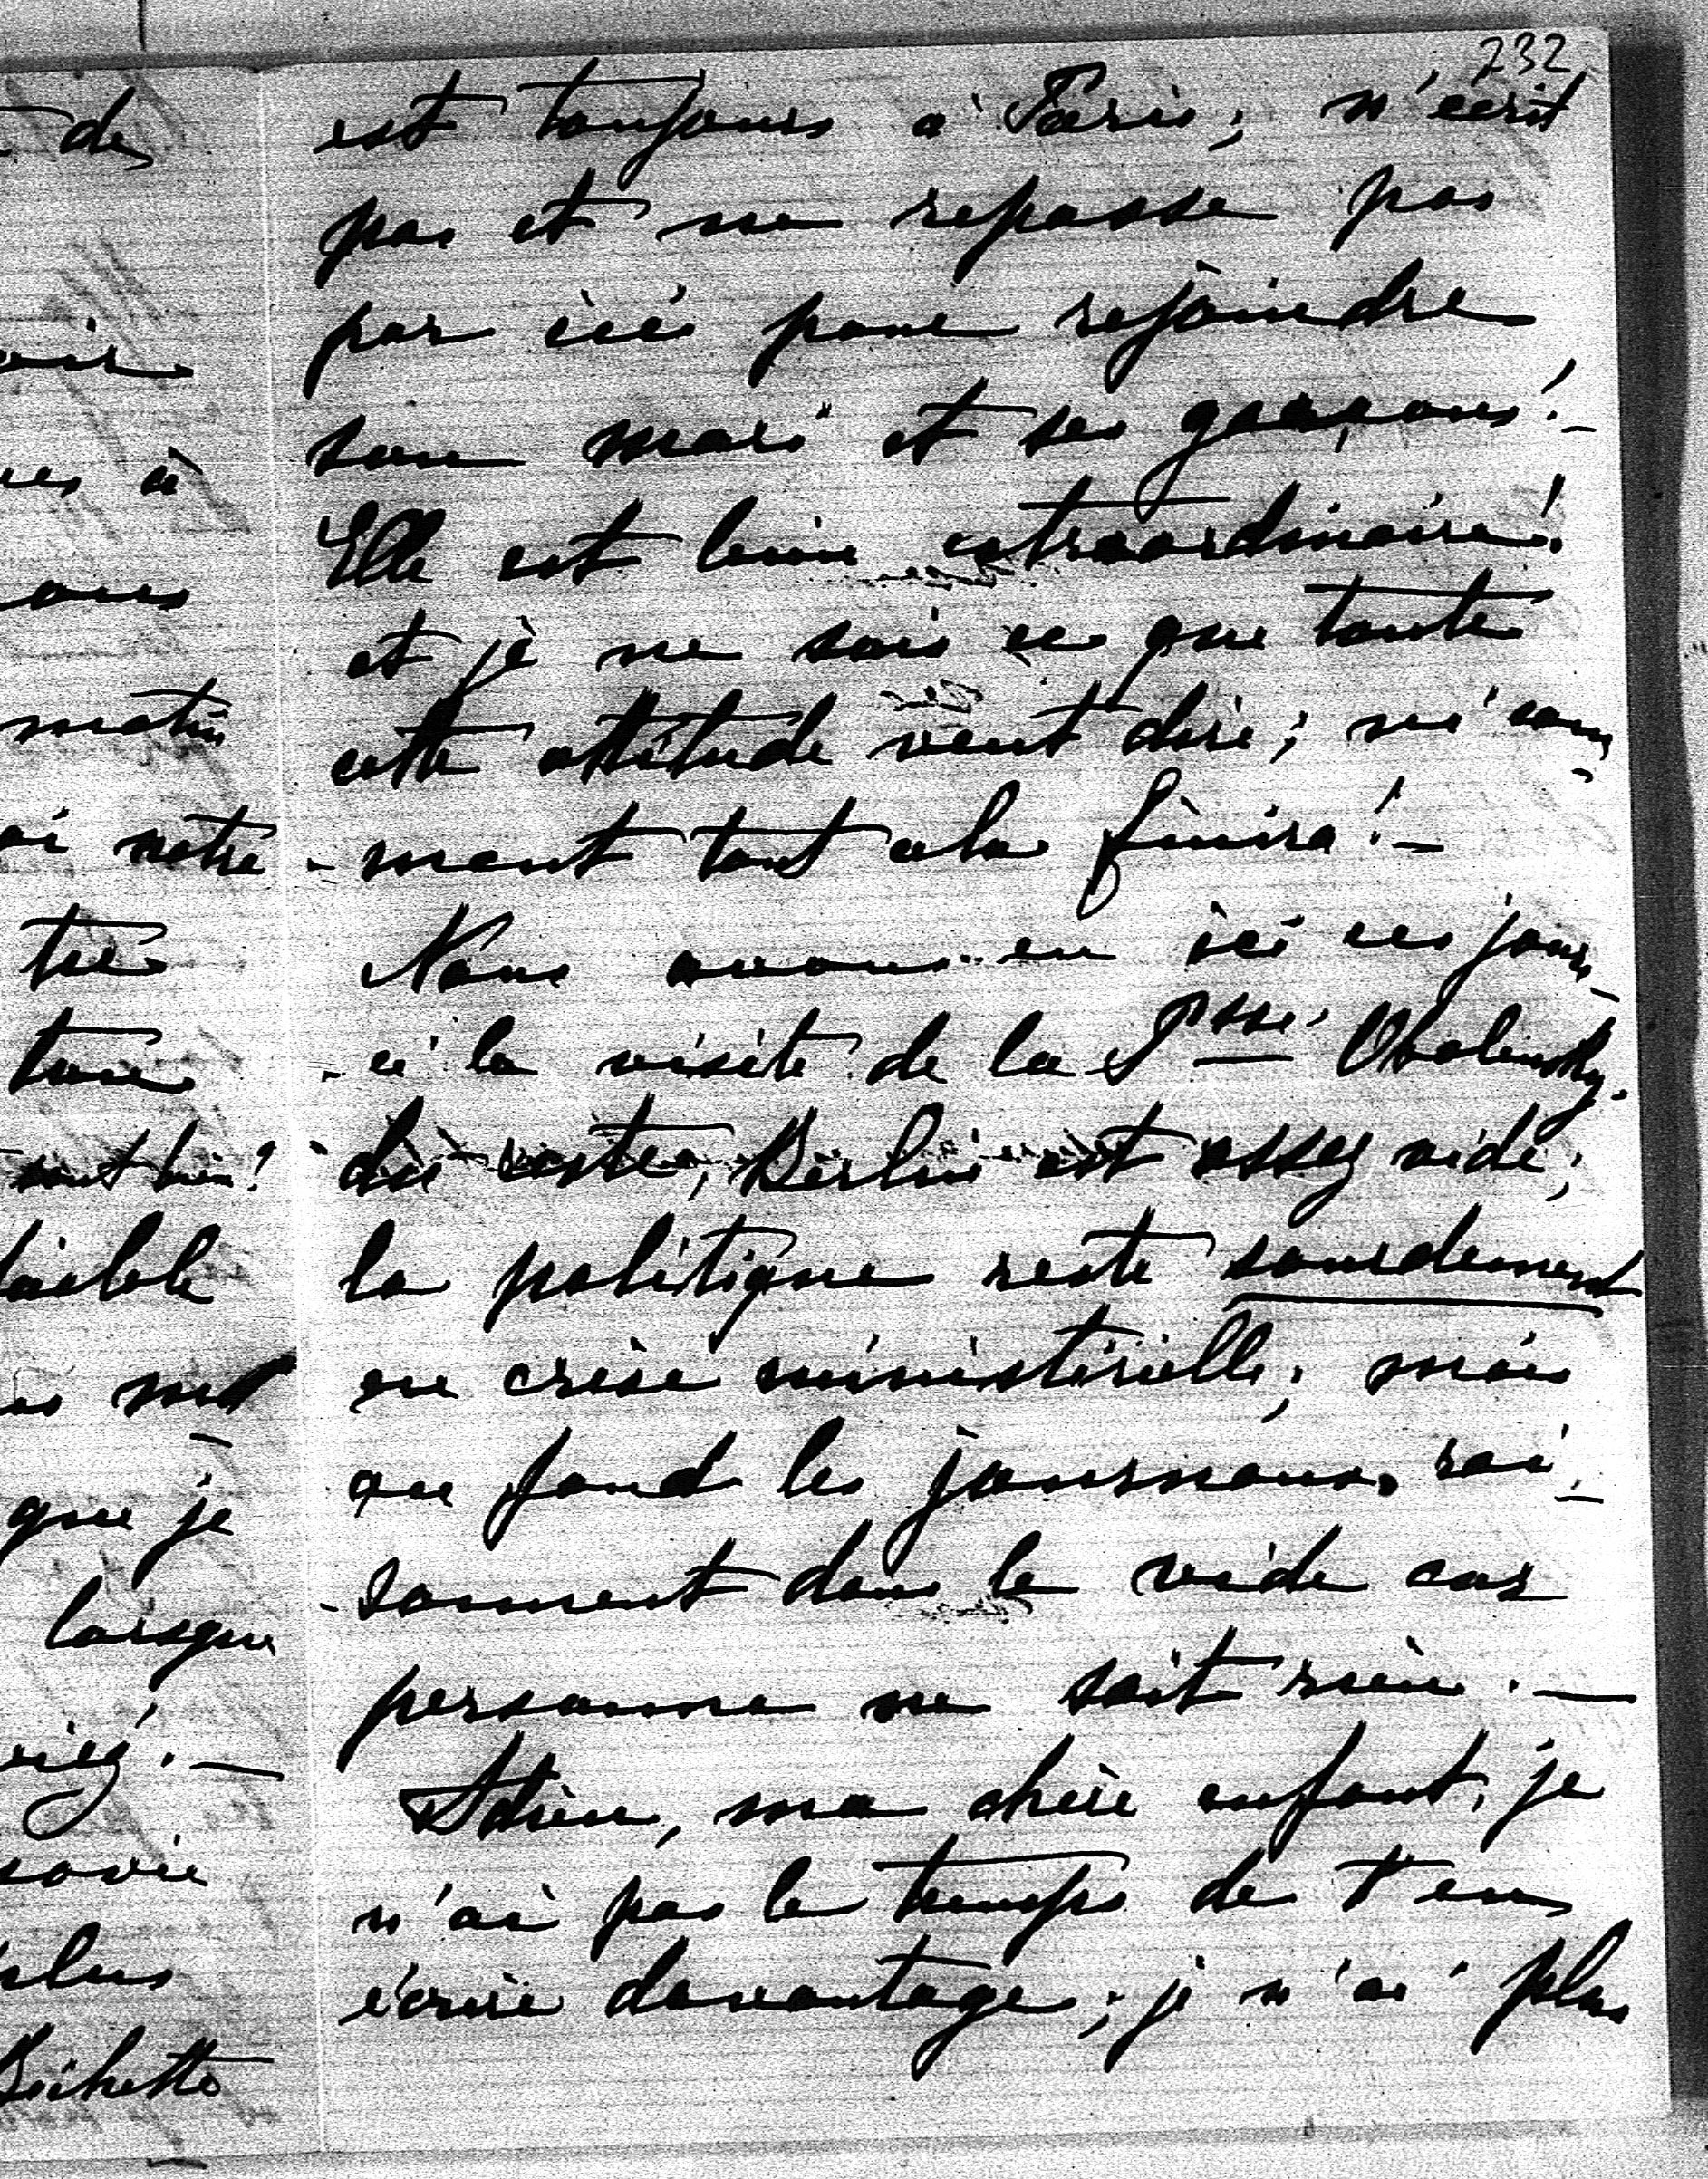 232
est toujours à Paris; n'écrit
pas et ne repasse pas
par ici pour rejoindre
son mari et ses garçons!
Elle est bien extraordinaire!
et je ne sais ce que toute
cette attitude veut dire; ni com
-ment tout cela finira!
Nous avons eu ici ces jours-
-ci la visite de la Psse Obolensky.
du reste, Berlin est assez vide;
la politique reste sourdement
en crise ministérielle; mais
au fond les journaux rai-
-sonnent dans le vide car
personne ne sait rien.
Adieu, ma chère enfant, je
n'ai pas le temps de t'en
écrire davantage; je n'ai plus
de
à
matin
notre
sont bien?
que je
lorsque
plus